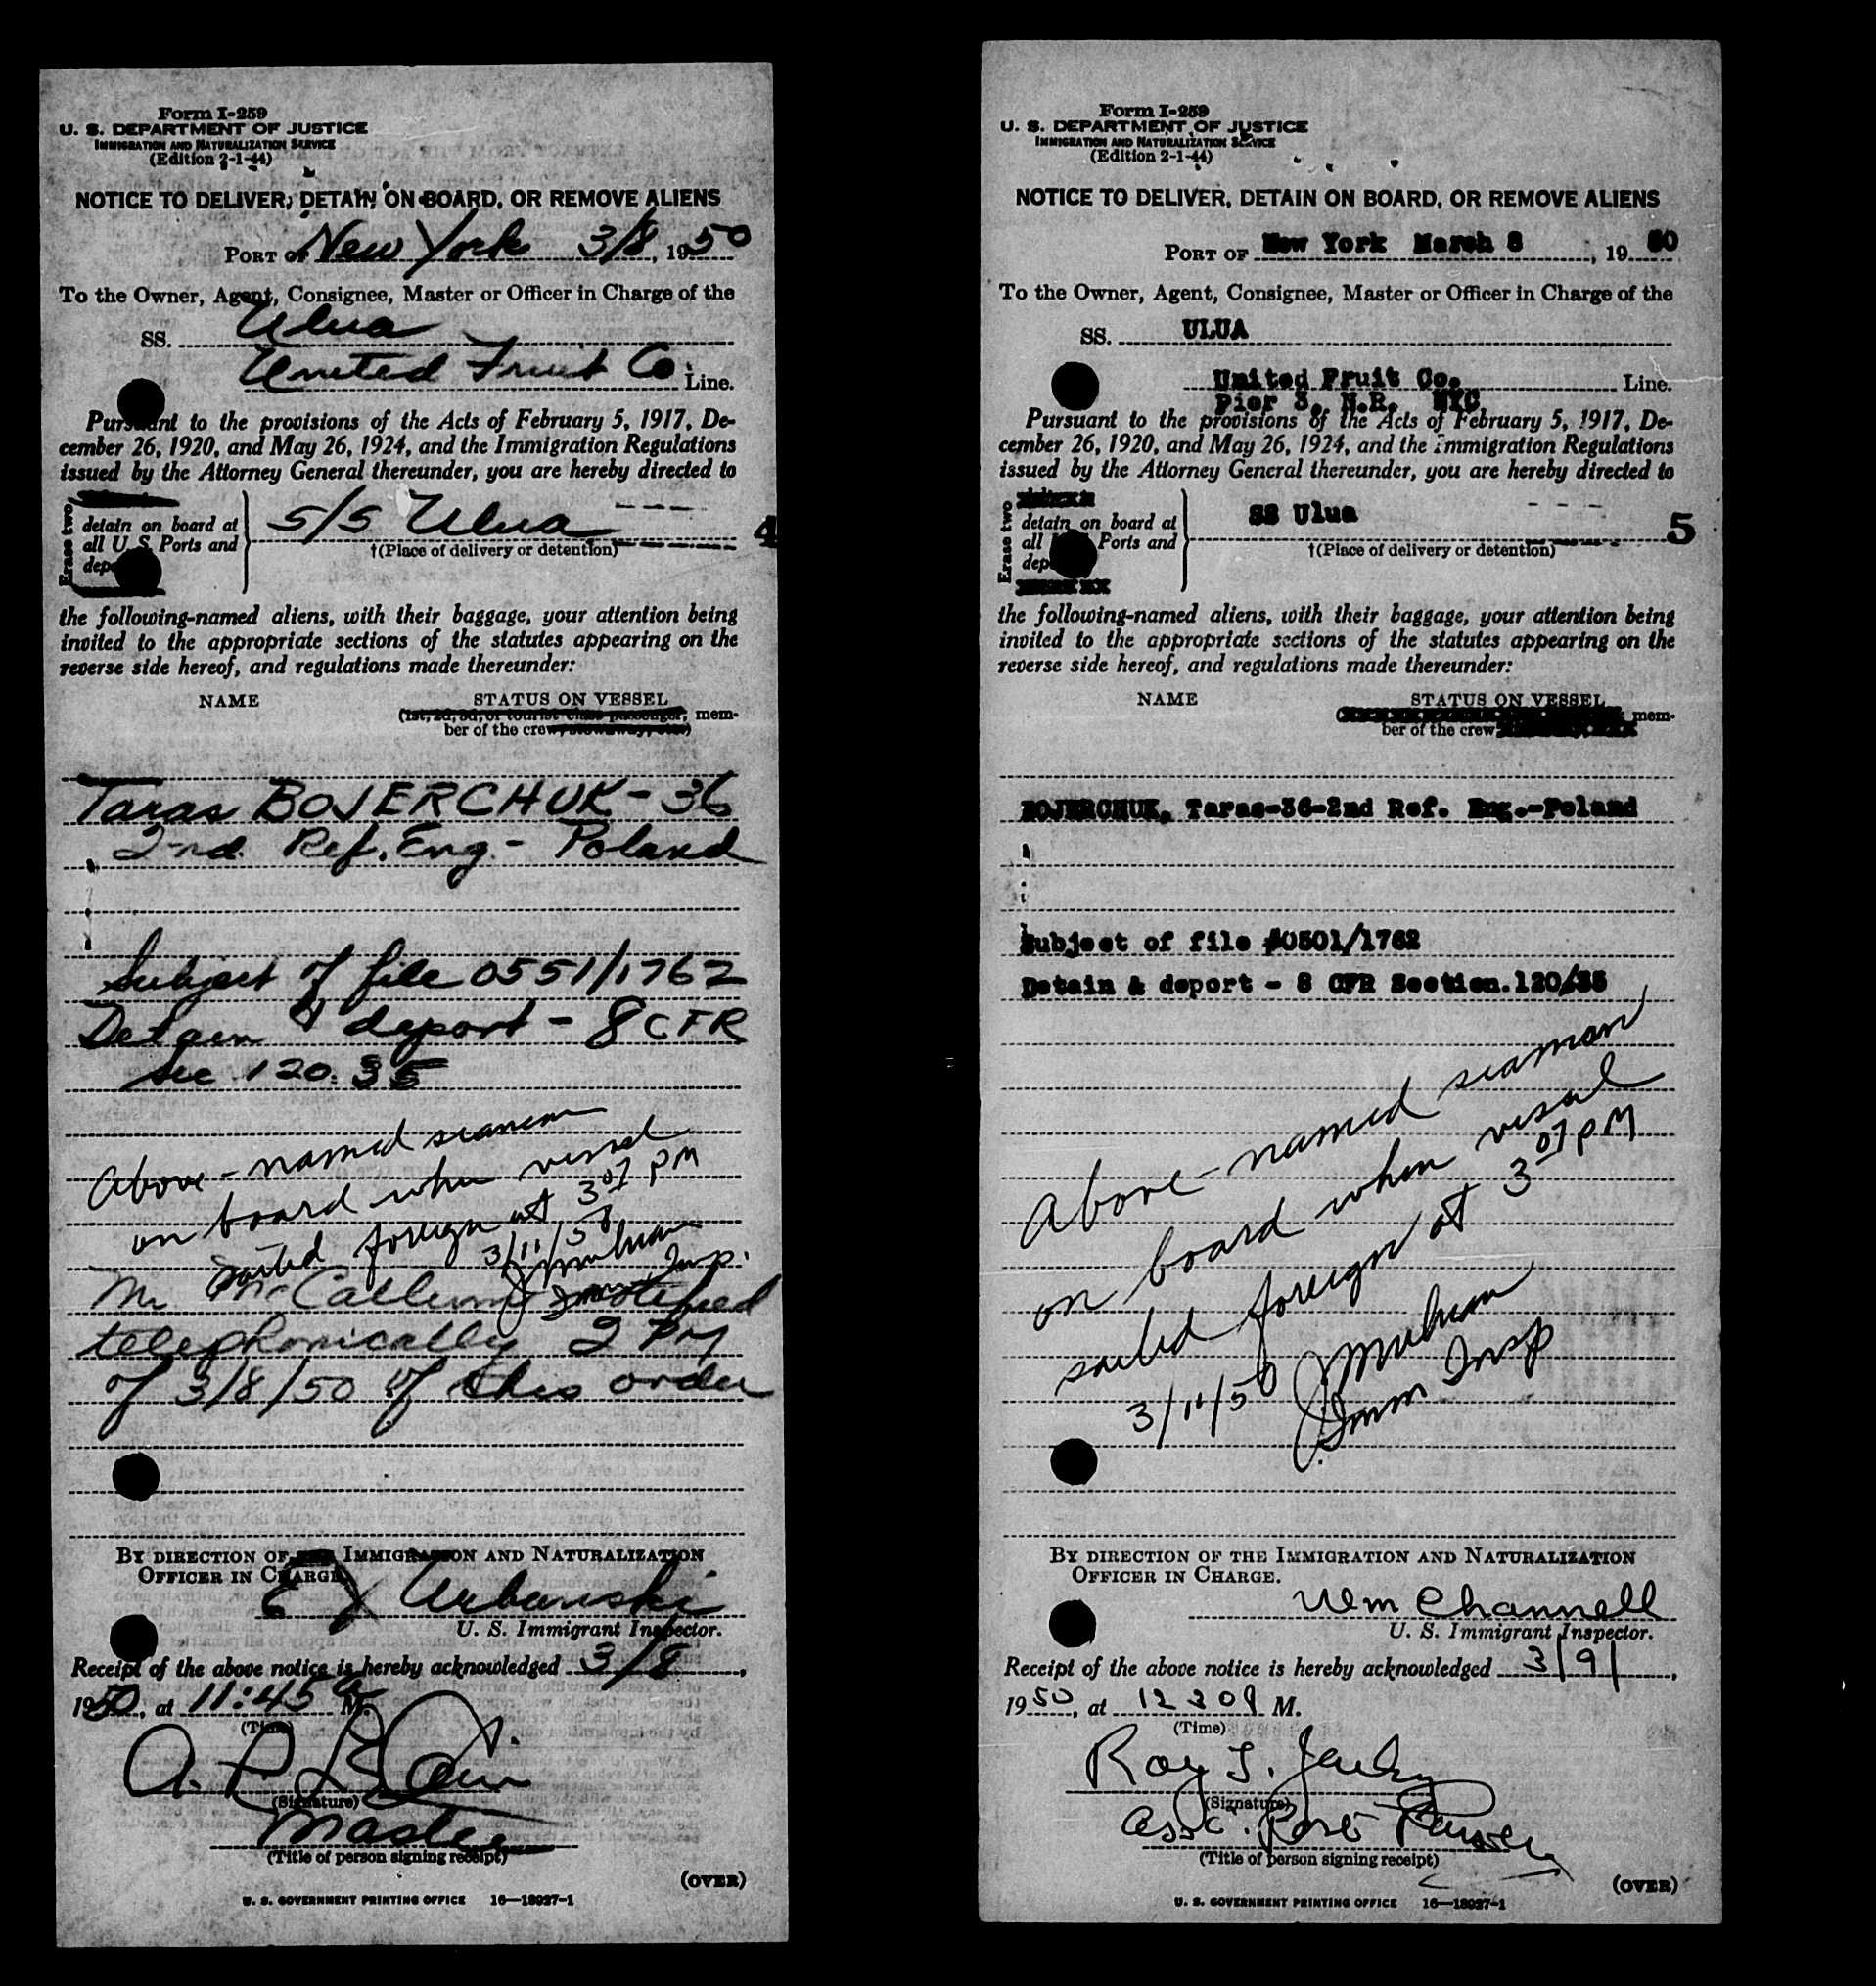 Form I-259
U. S. DEPARTMENT OF JUSTICE
IMMIGRATION AND NATURALIZATION SERVICE
(Edition 2-1-44)
NOTICE TO DELIVER, DETAIN ON BOARD, OR REMOVE ALIENS
PORT OF New York 3/8, 1950
To the Owner, Agent, Consignee, Master or Officer in Charge of the
SS. Ulua
United Fruit Co. Line.
Pursuant to the provisions of the Acts of February 5, 1917, De-
cember 26, 1920, and May 26, 1924, and the Immigration Regulations
issued by the Attorney General thereunder, you are hereby directed to
Erase two
detain on board at
all U. S. Ports and
S/S Ulua
4
†(Place of delivery or detention)
the following-named aliens, with their baggage, your attention being
invited to the appropriate sections of the statutes appearing on the
reverse side hereof, and regulations made thereunder:
NAME STATUS ON VESSEL
(1st, 2d, 3d, or tourist class passenger, mem-
ber of the crew, stowaway, etc.)
Taras BOJERCHUK - 36
2nd. Ref. Eng. - Poland
Subject of file 0551/1762
Detain & deport - 8 CFR
Sec 120.35
Above-named seaman
on board when vessel
sailed foreign at 3 07 PM
3/11/50
Imm. Insp.
Mr McCallum notified
telephonically 2 PM
of 3/8/50 of this order
BY DIRECTION OF IMMIGRATION AND NATURALIZATION
OFFICER IN CHARGE.
Urbanski
U. S. Immigrant Inspector.
Receipt of the above notice is hereby acknowledged 3/8,
1950, at 11:45 a M.
(Time)
(Signature)
Master
(Title of person signing receipt)
(OVER)
U. S. GOVERNMENT PRINTING OFFICE 16—18937-1
Form I-259
U. S. DEPARTMENT OF JUSTICE
IMMIGRATION AND NATURALIZATION SERVICE
(Edition 2-1-44)
NOTICE TO DELIVER, DETAIN ON BOARD, OR REMOVE ALIENS
PORT OF New York March 8, 19 50
To the Owner, Agent, Consignee, Master or Officer in Charge of the
SS. ULUA
United Fruit Co. Line.
Pier 3, N.R. NYC
Pursuant to the provisions of the Acts of February 5, 1917, De-
cember 26, 1920, and May 26, 1924, and the Immigration Regulations
issued by the Attorney General thereunder, you are hereby directed to
Erase two
detain on board at
all Ports and
SS Ulua
5
†(Place of delivery or detention)
the following-named aliens, with their baggage, your attention being
invited to the appropriate sections of the statutes appearing on the
reverse side hereof, and regulations made thereunder:
NAME STATUS ON VESSEL
mem-
ber of the crew
BOJERCHUK, Taras-36-2nd Ref. Eng.-Poland
Subject of file #0501/1762
Detain & deport - 8 CFR Section.120/35
Above-named seaman
on board when vessel
sailed foreign at 3 07 PM
3/11/50
Imm Insp
BY DIRECTION OF THE IMMIGRATION AND NATURALIZATION
OFFICER IN CHARGE.
Wm Channell
U. S. Immigrant Inspector.
Receipt of the above notice is hereby acknowledged 3/9/,
1950, at 12 30 P M.
(Time)
Roy
(Signature)
(Title of person signing receipt)
(OVER)
U. S. GOVERNMENT PRINTING OFFICE 16—18937-1